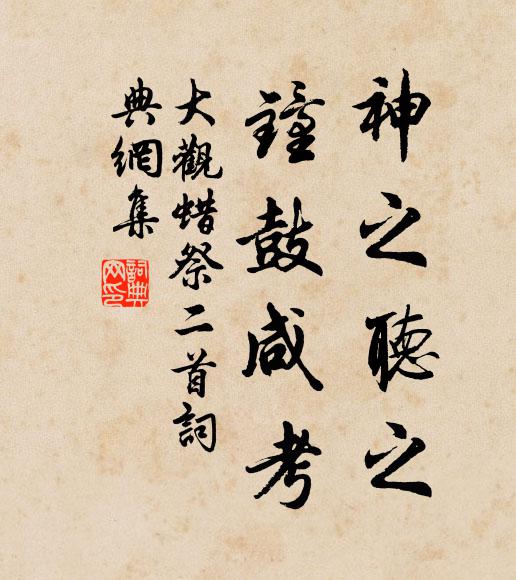 神之聽之
鐘鼓咸考
大觀蜡祭二首詞
典網集
詞典網印